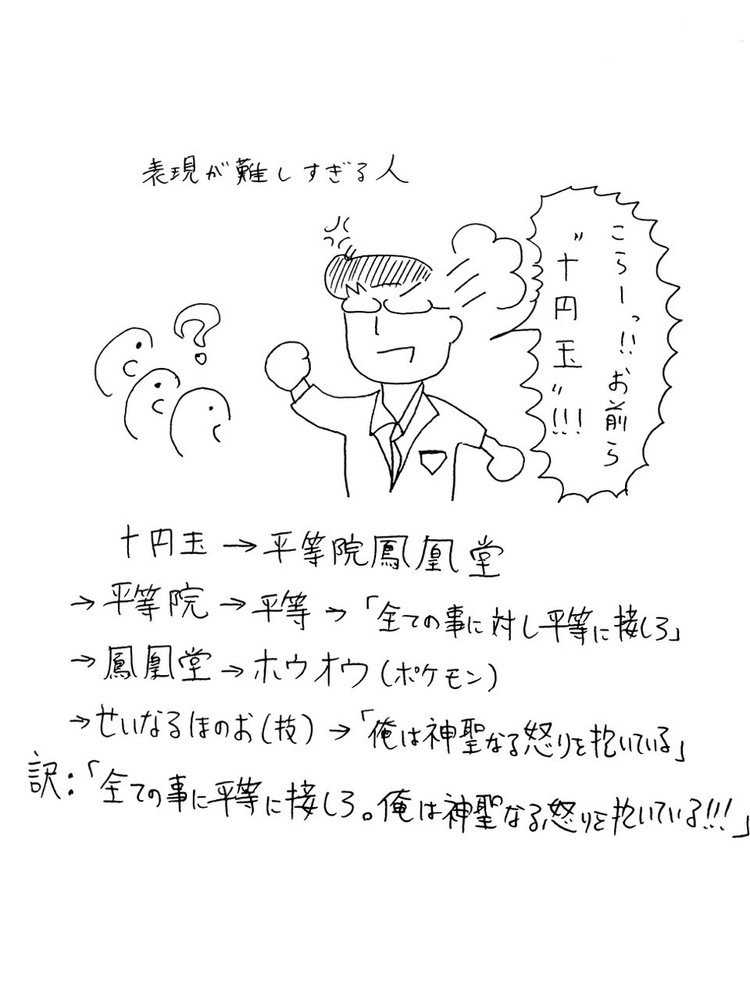 表現が難しすぎる人
こらーっ!!お前ら
"十円玉"!!!
?
十円玉→平等院鳳凰堂
→平等院→平等→「全ての事に対し平等に接しろ」
→鳳凰堂→ホウオウ(ポケモン)
→せいなるほのお(技)→「俺は神聖なる怒りを抱いている」
訳:「全ての事に平等に接しろ。俺は神聖なる怒りを抱いている!!!」